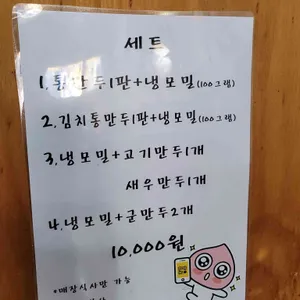 세트
1.통만두1판+냉모밀(100그램)
2.김치통만두1판+냉모밀(100그램)
3.냉모밀+고기만두1개
새우만두1개
4.냉모밀+군만두2개
10,000원
*매장식사만 가능